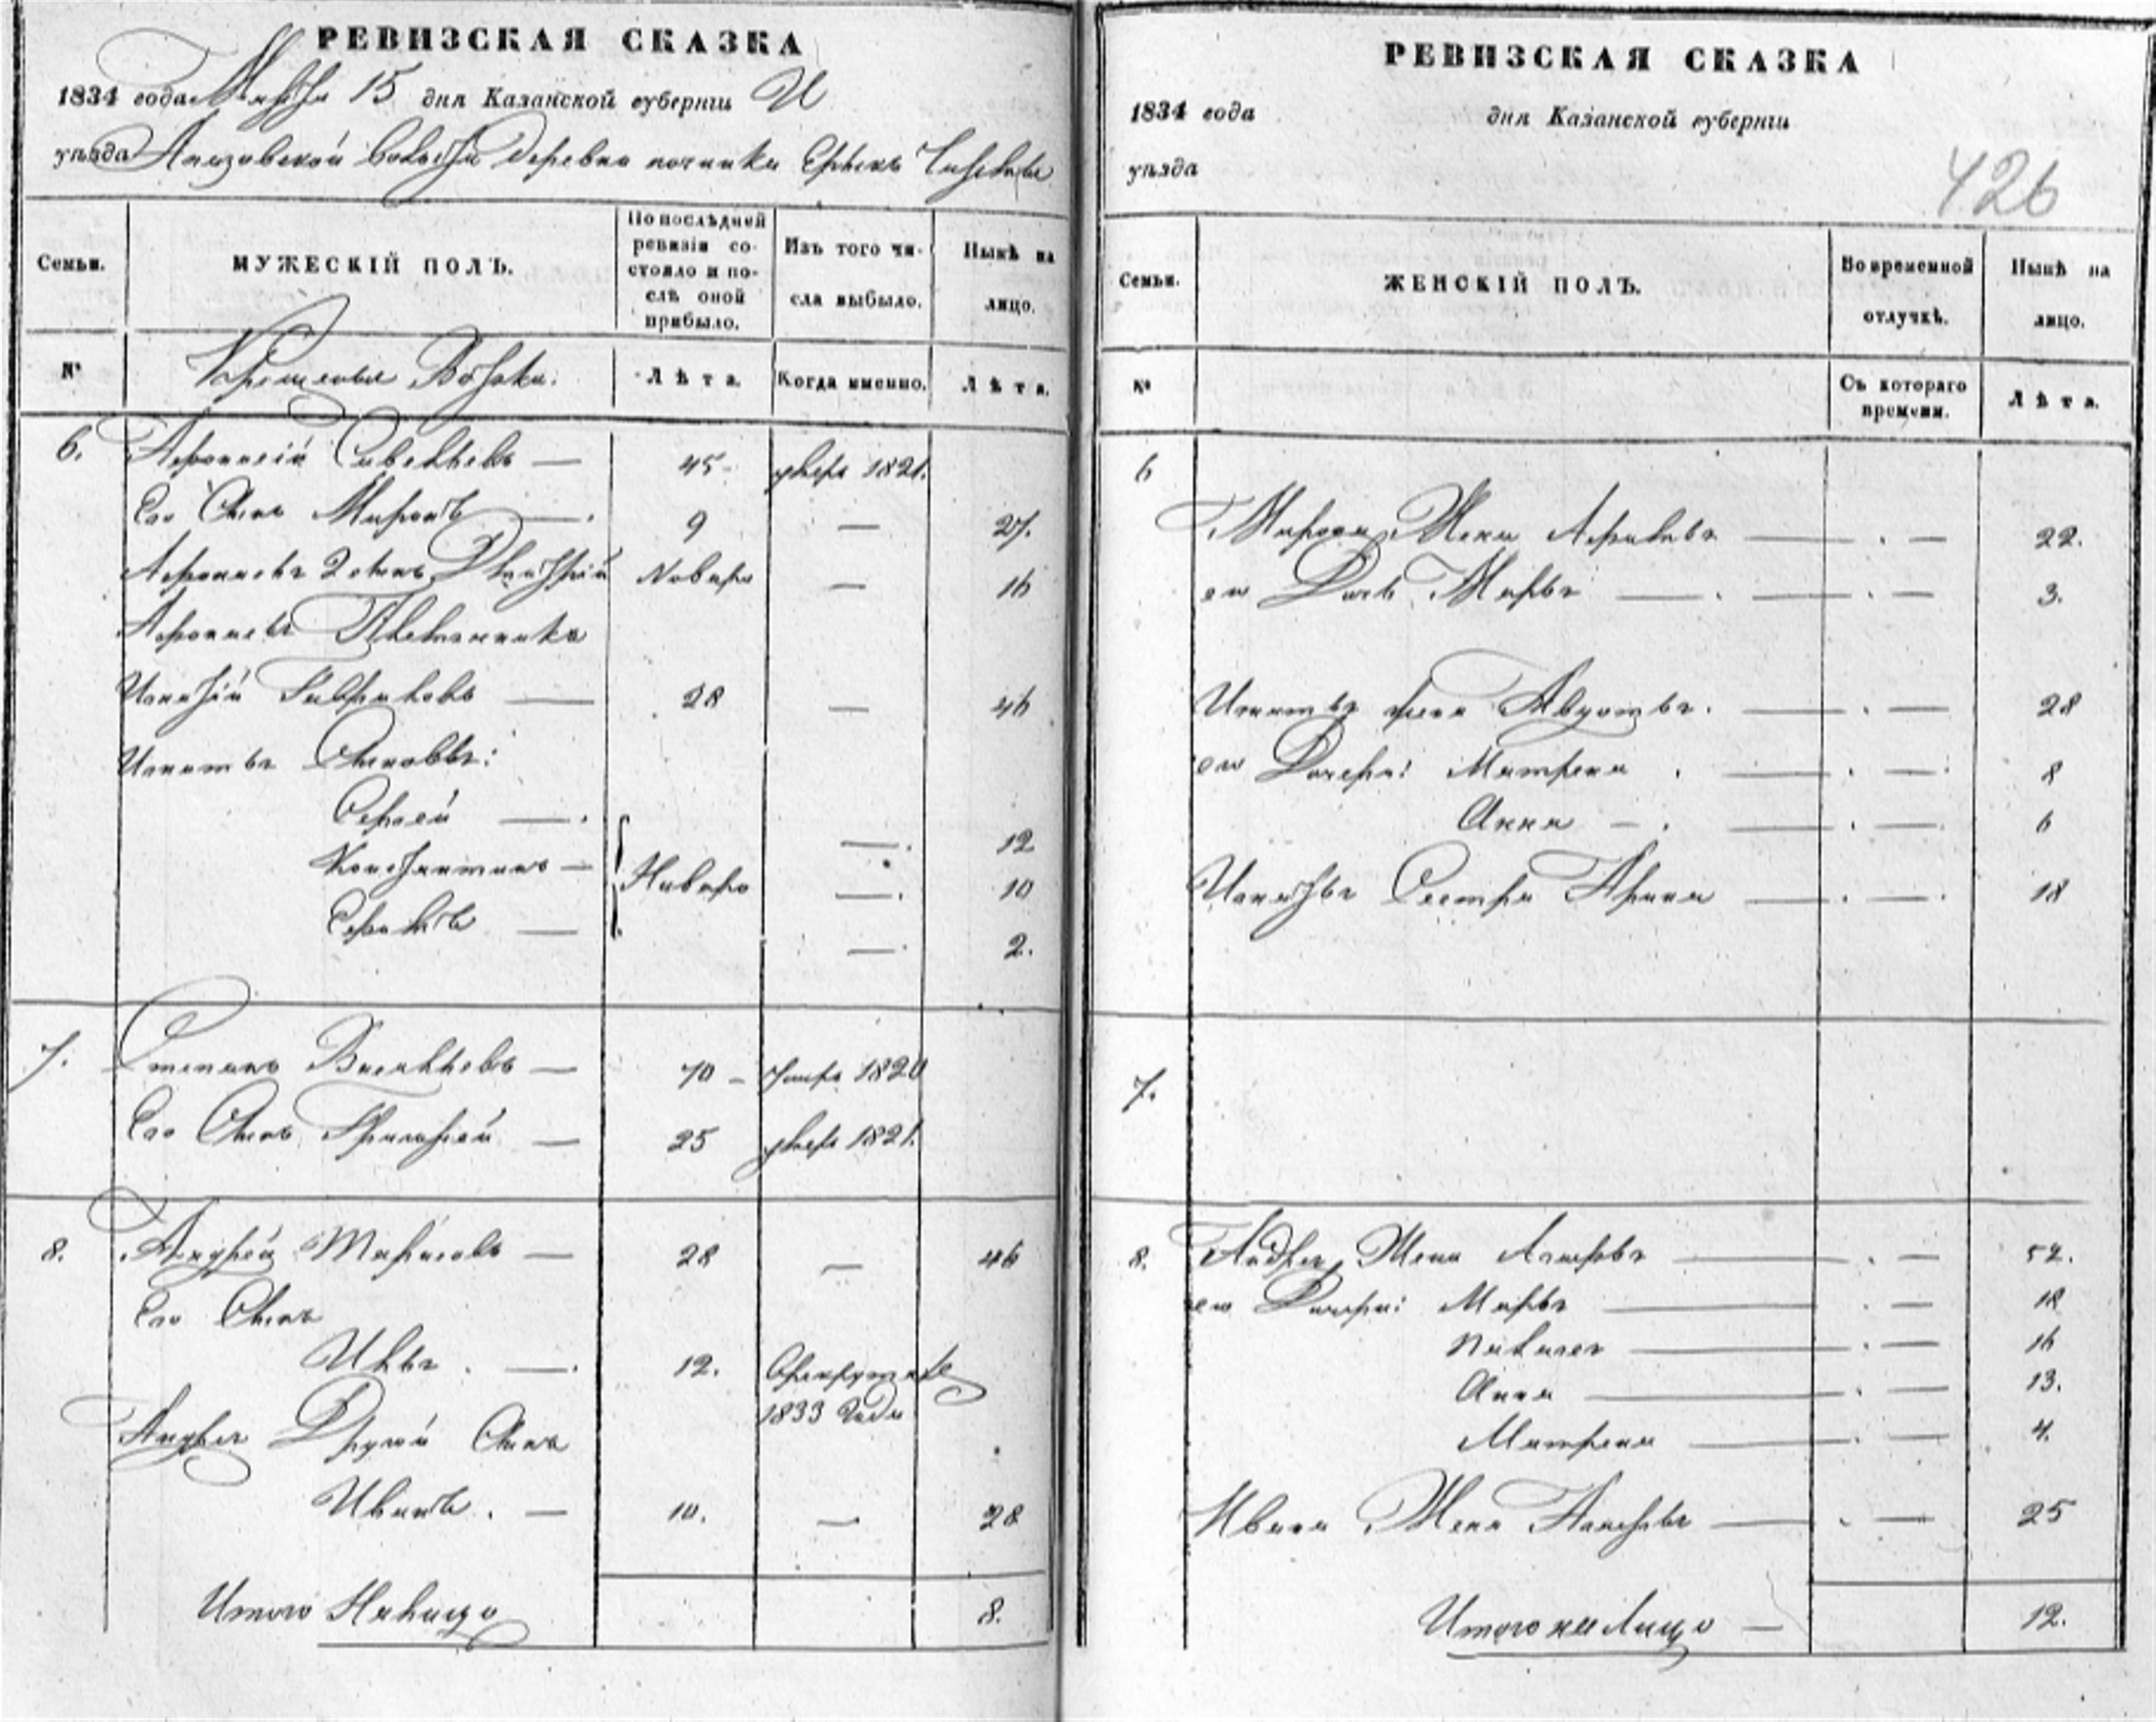 РЕВИЗСКАЯ СКАЗКА
1834 года Марта 15 дня Казанской губернiи
уѣзда волости деревна починка
Семьи.
МУЖЕСКІЙ ПОЛЪ.
По послѣдней ревизіи состояло и послѣ оной прибыло.
Изъ того числа выбыло.
Нынѣ на лицо.
№
Крещеные Вотяки.
Лѣта.
Когда именно.
Лѣта.
6. Савельевъ — 45 умеръ 1821.
Его Сынъ Миронъ — 9 — 27.
2 сынъ Дмитрій Новоро — 16
Племянникъ
Игнатій Гавриловъ — 28 — 46
Игнатья Сыновья:
Сергей — — 12
Константинъ — Новоро — 10
— — 2.
7. Степанъ Васильевъ — 70 — Умеръ 1820
Его Сынъ Григорей — 25 умеръ 1821.
8. Андрей Тарасовъ — 28 — 46
Его Сынъ
Илья — 12. Орекрутъ
1833 года
Андрея Другой Сынъ
Иванъ. — 10. — 28
Итого Налицо 8.
РЕВИЗСКАЯ СКАЗКА
1834 года дня Казанской губернiи
уѣзда
426
Семьи.
ЖЕНСКІЙ ПОЛЪ.
Во временной отлучкѣ.
Нынѣ на лицо.
№
Съ котораго времени.
Лѣта.
6
Мирона Жена — 22.
ея Дочь Марья — 3.
Игнатья жена Авдотья. — 28
ея Дочери: Матрена — 8
Анна — 6
Игнатья Сестра Арина — 18
7.
8. Андрея Жена — 52.
ея Дочери: Марья — 18
Пелагея — 16
Анна — 13.
Матрена — 4.
Ивана Жена — 25
Итого на лицо — 12.